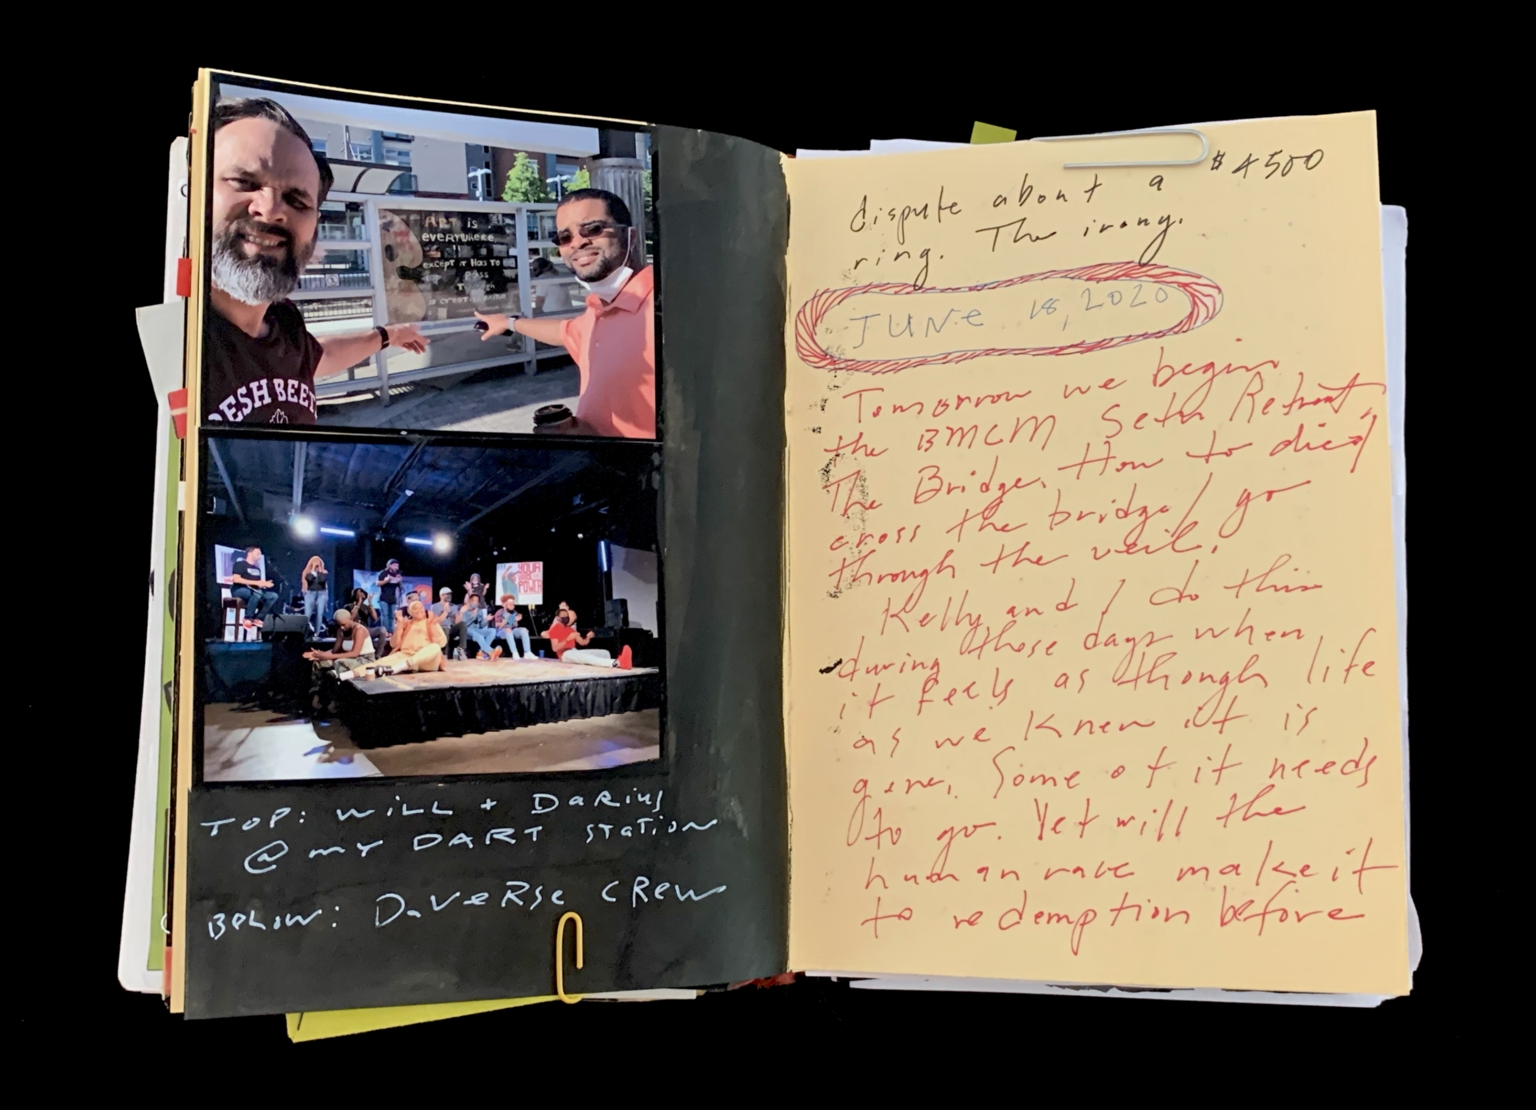 ART is
everywhere
except it Has to
pass
through
ESH BEET
YOUR
POWER
TOP: WiLL + DaRius
@ mY DART Station
BeLow: DaVeRse CRew
dispute about a $4500
ring. The irony.
JUNe 18, 2020
Tomorrow we begin
the BMCM Seth Retreat,
The Bridge. How to die /
cross the bridge / go
through the veil.
Kelly and I do this
during those days when
it feels as though life
as we knew it is
gone. Some of it needs
to go. Yet will the
human race make it
to redemption before